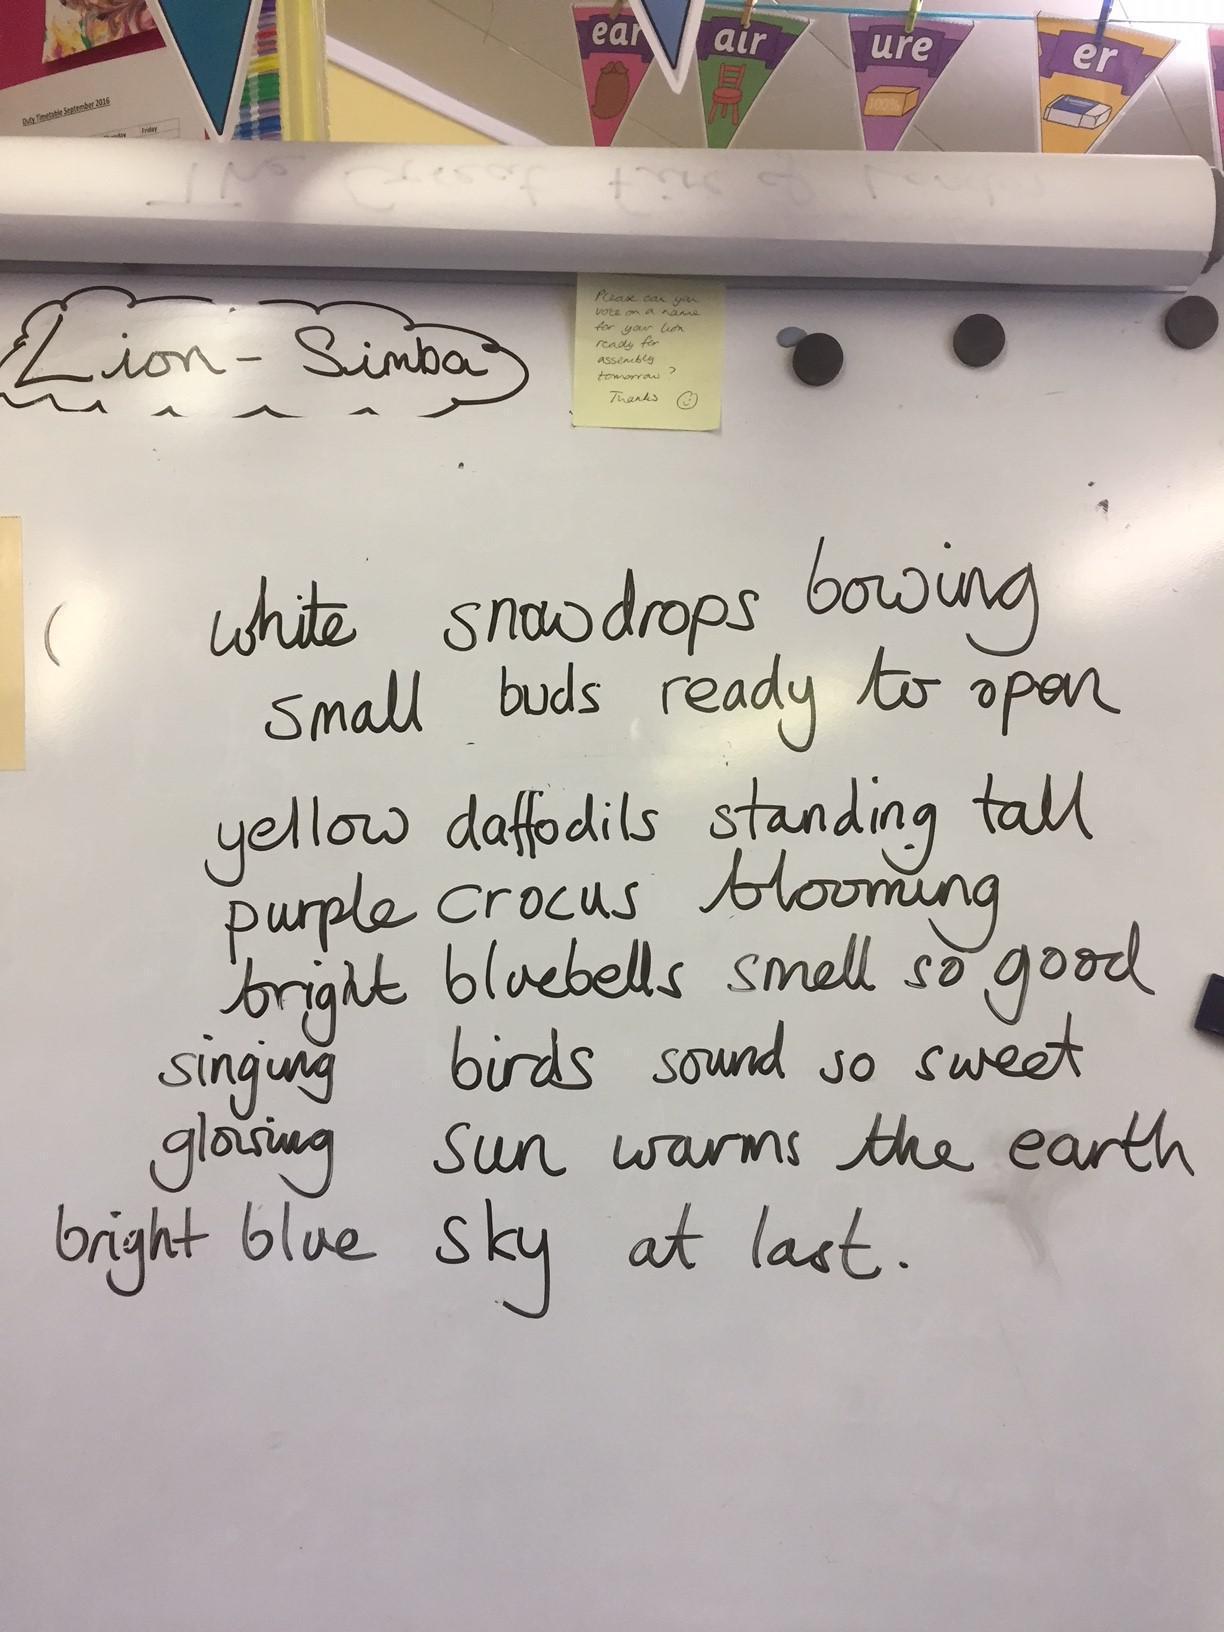 ear
air
ure
100%
er
Duty Timetable September 2016
Friday
The Great Fire of London
Lion - Simba
Please can you
vote on a name
for your lion
ready for
assembly
tomorrow?
Thanks ☺
white snowdrops bowing
small buds ready to open
yellow daffodils standing tall
purple crocus blooming
bright bluebells smell so good
singing birds sound so sweet
glowing sun warms the earth
bright blue sky at last.